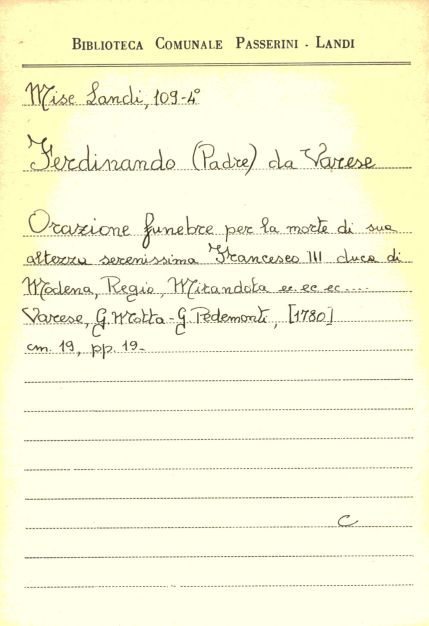 BIBLIOTECA COMUNALE PASSERINI - LANDI
Misc Landi, 109-4°
Ferdinando (Padre) da Varese
Orazione funebre per la morte di sua
altezza serenissima Francesco III duca di
Modena, Regio, Mirandola ec ec ec....
Varese, G. Motta - G. Pedemonti, [1780]
cm. 19, pp. 19-
C